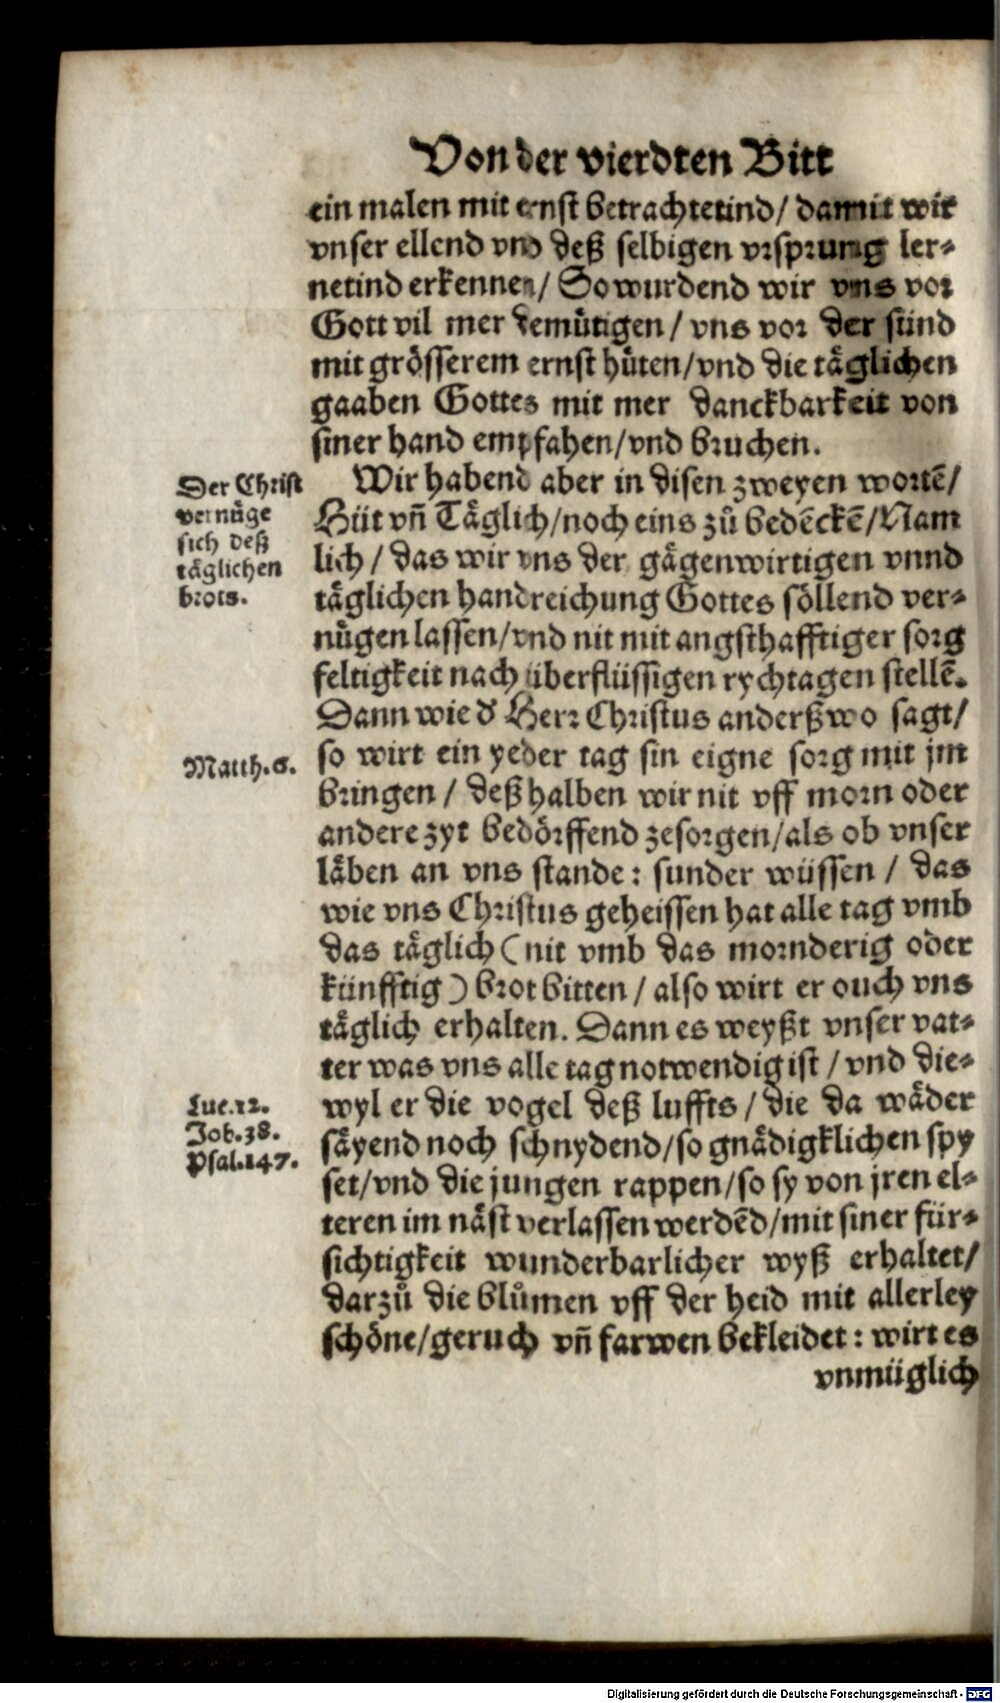 Von der vierdten Bitt
ein malen mit ernst betrachtetind/ damit wir
vnser ellend vnd deß selbigen vrsprung ler⸗
netind erkennen/ So wurdend wir vns vor
Gott vil mer demütigen/ vns vor der sünd
mit grösserem ernst hüten/vnd die täglichen
gaaben Gottes mit mer danckbarkeit von
siner hand empfahen/vnd bruchen.
Wir habend aber in disen zweyen wortẽ/
Hüt vñ Täglich/noch eins zů bedẽckẽ/Nam
lich/ das wir vns der gägenwirtigen vnnd
täglichen handreichung Gottes söllend ver⸗
nügen lassen/vnd nit mit angsthafftiger sorg
feltigkeit nach überflüssigen rychtagen stellẽ.
Dann wie d' Herr Christus anderßwo sagt/
so wirt ein yeder tag sin eigne sorg mit jm
bringen/ deßhalben wir nit vff morn oder
andere zyt bedörffend zesorgen/als ob vnser
läben an vns stande: sunder wüssen/ das
wie vns Christus geheissen hat alle tag vmb
das täglich (nit vmb das mornderig oder
künfftig) brot bitten/ also wirt er ouch vns
täglich erhalten. Dann es weyßt vnser vat⸗
ter was vns alle tag notwendig ist/ vnd die⸗
wyl er die vogel deß luffts/ die da wäder
säyend noch schnydend/so gnädigklichen spy
set/vnd die jungen rappen/so sy von jren el⸗
teren im näst verlassen werdẽd/mit siner für⸗
sichtigkeit wunderbarlicher wyß erhaltet/
darzů die blůmen vff der heid mit allerley
schöne/geruch vñ farwen bekleidet: wirt es
vnmüglich
Der Christ
vernüge
sich deß
täglichen
brots.
Matth.6.
Luc.12.
Job.38.
Psal.147.
Digitalisierung gefördert durch die Deutsche Forschungsgemeinschaft - DFG